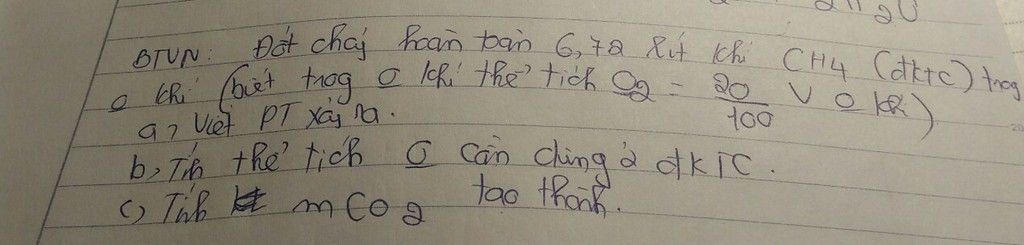 BTVN: Đốt cháy hoàn toàn 6,72 lít khí CH4 (đktc) trog
o khí (biết trog o khí thể tích O2 = 20/100 V o khí)
a, Viết PT xảy ra.
b, Tính thể tích o cần dùng ở đkTC.
c) Tính mCO2 tạo thành.